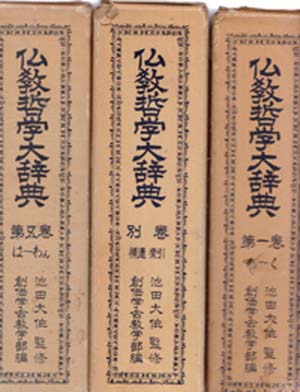 仏教哲学大辞典
第五巻
は―わん
池田大作 監修
創価学会教学部編
仏教哲学大辞典
別巻
補遺・索引
池田大作 監修
創価学会教学部編
仏教哲学大辞典
第一巻
あ―く
池田大作 監修
創価学会教学部編